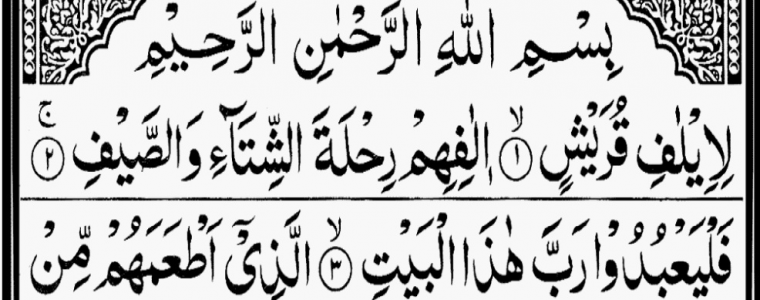 بِسْمِ اللهِ الرَّحْمٰنِ الرَّحِيْمِ
لِاِيْلٰفِ قُرَيْشٍ ۙ﴿۱﴾ اٖلٰفِهِمْ رِحْلَةَ الشِّتَآءِ وَالصَّيْفِ ۚ﴿۲﴾
فَلْيَعْبُدُوْا رَبَّ هٰذَا الْبَيْتِ ۙ﴿۳﴾ الَّذِيْۤ اَطْعَمَهُمْ مِّنْ